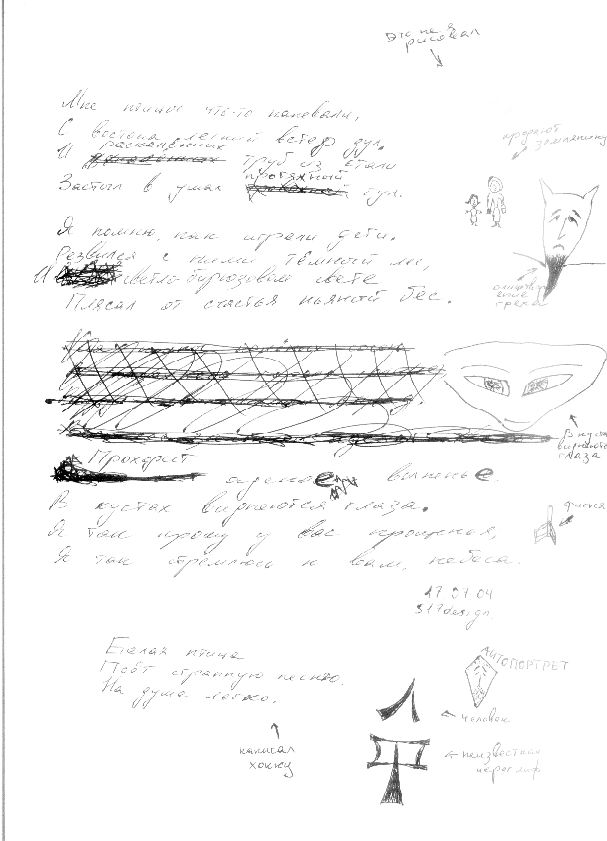 Это не я
рисовал
Мне помние что-то напевали,
С востока летний ветер дул.
И раскалённых труб из стали
Застыл в умах протяжный гул.
продают
землянику
Я помню, как играли дети.
Резвился с ними тёмный лес,
И светло-бирюзовом свете
Плясал от счастья пьяный бес.
греха
В кустах
виднеются
глаза
Прокофист
волненье.
В кустах виднеются глаза.
Я так прошу у вас прощенья,
Я так стремлюсь к вам, небеса.
17.07.04
317design.
Белая птица
Поёт странную песню.
На душе легко.
написал
хокку
АВТОПОРТРЕТ
человек
неизвестный
иероглиф